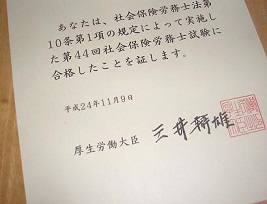 あなたは、社会保険労務士法第
10条第1項の規定によって実施し
た第44回社会保険労務士試験に
合格したことを証します。
平成24年11月9日
厚生労働大臣 三井辨雄